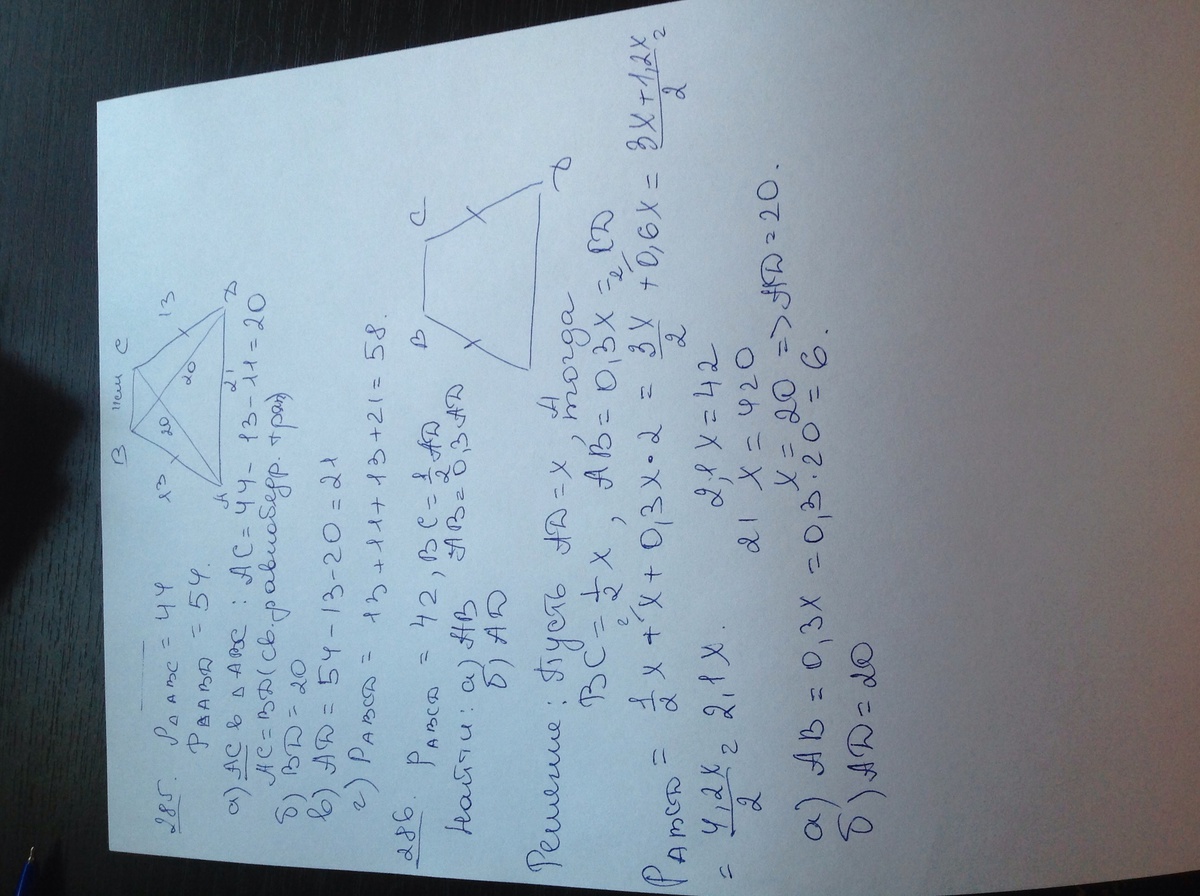 285. P△ABC = 44
P△ABD = 54.
B 11см C
13 20 20 13
A 21 D
а) AC в △ABC : AC = 44 - 13 - 11 = 20
AC = BD (св. равнобедр. трап)
б) BD = 20
в) AD = 54 - 13 - 20 = 21
г) PABCD = 13 + 11 + 13 + 21 = 58.
286. PABCD = 42, BC = 1/2 AD
AB = 0,3 AD
Найти: а) AB
б) AD
B C
A D
Решение: Пусть AD = x, тогда
BC = 1/2 x, AB = 0,3x = CD
PABCD = 1/2 x + x + 0,3x · 2 = 3x/2 + 0,6x = (3x + 1,2x)/2 =
= 4,2x/2 = 2,1x. 2,1x = 42
21 x = 420
x = 20 => AD = 20.
а) AB = 0,3x = 0,3 · 20 = 6.
б) AD = 20